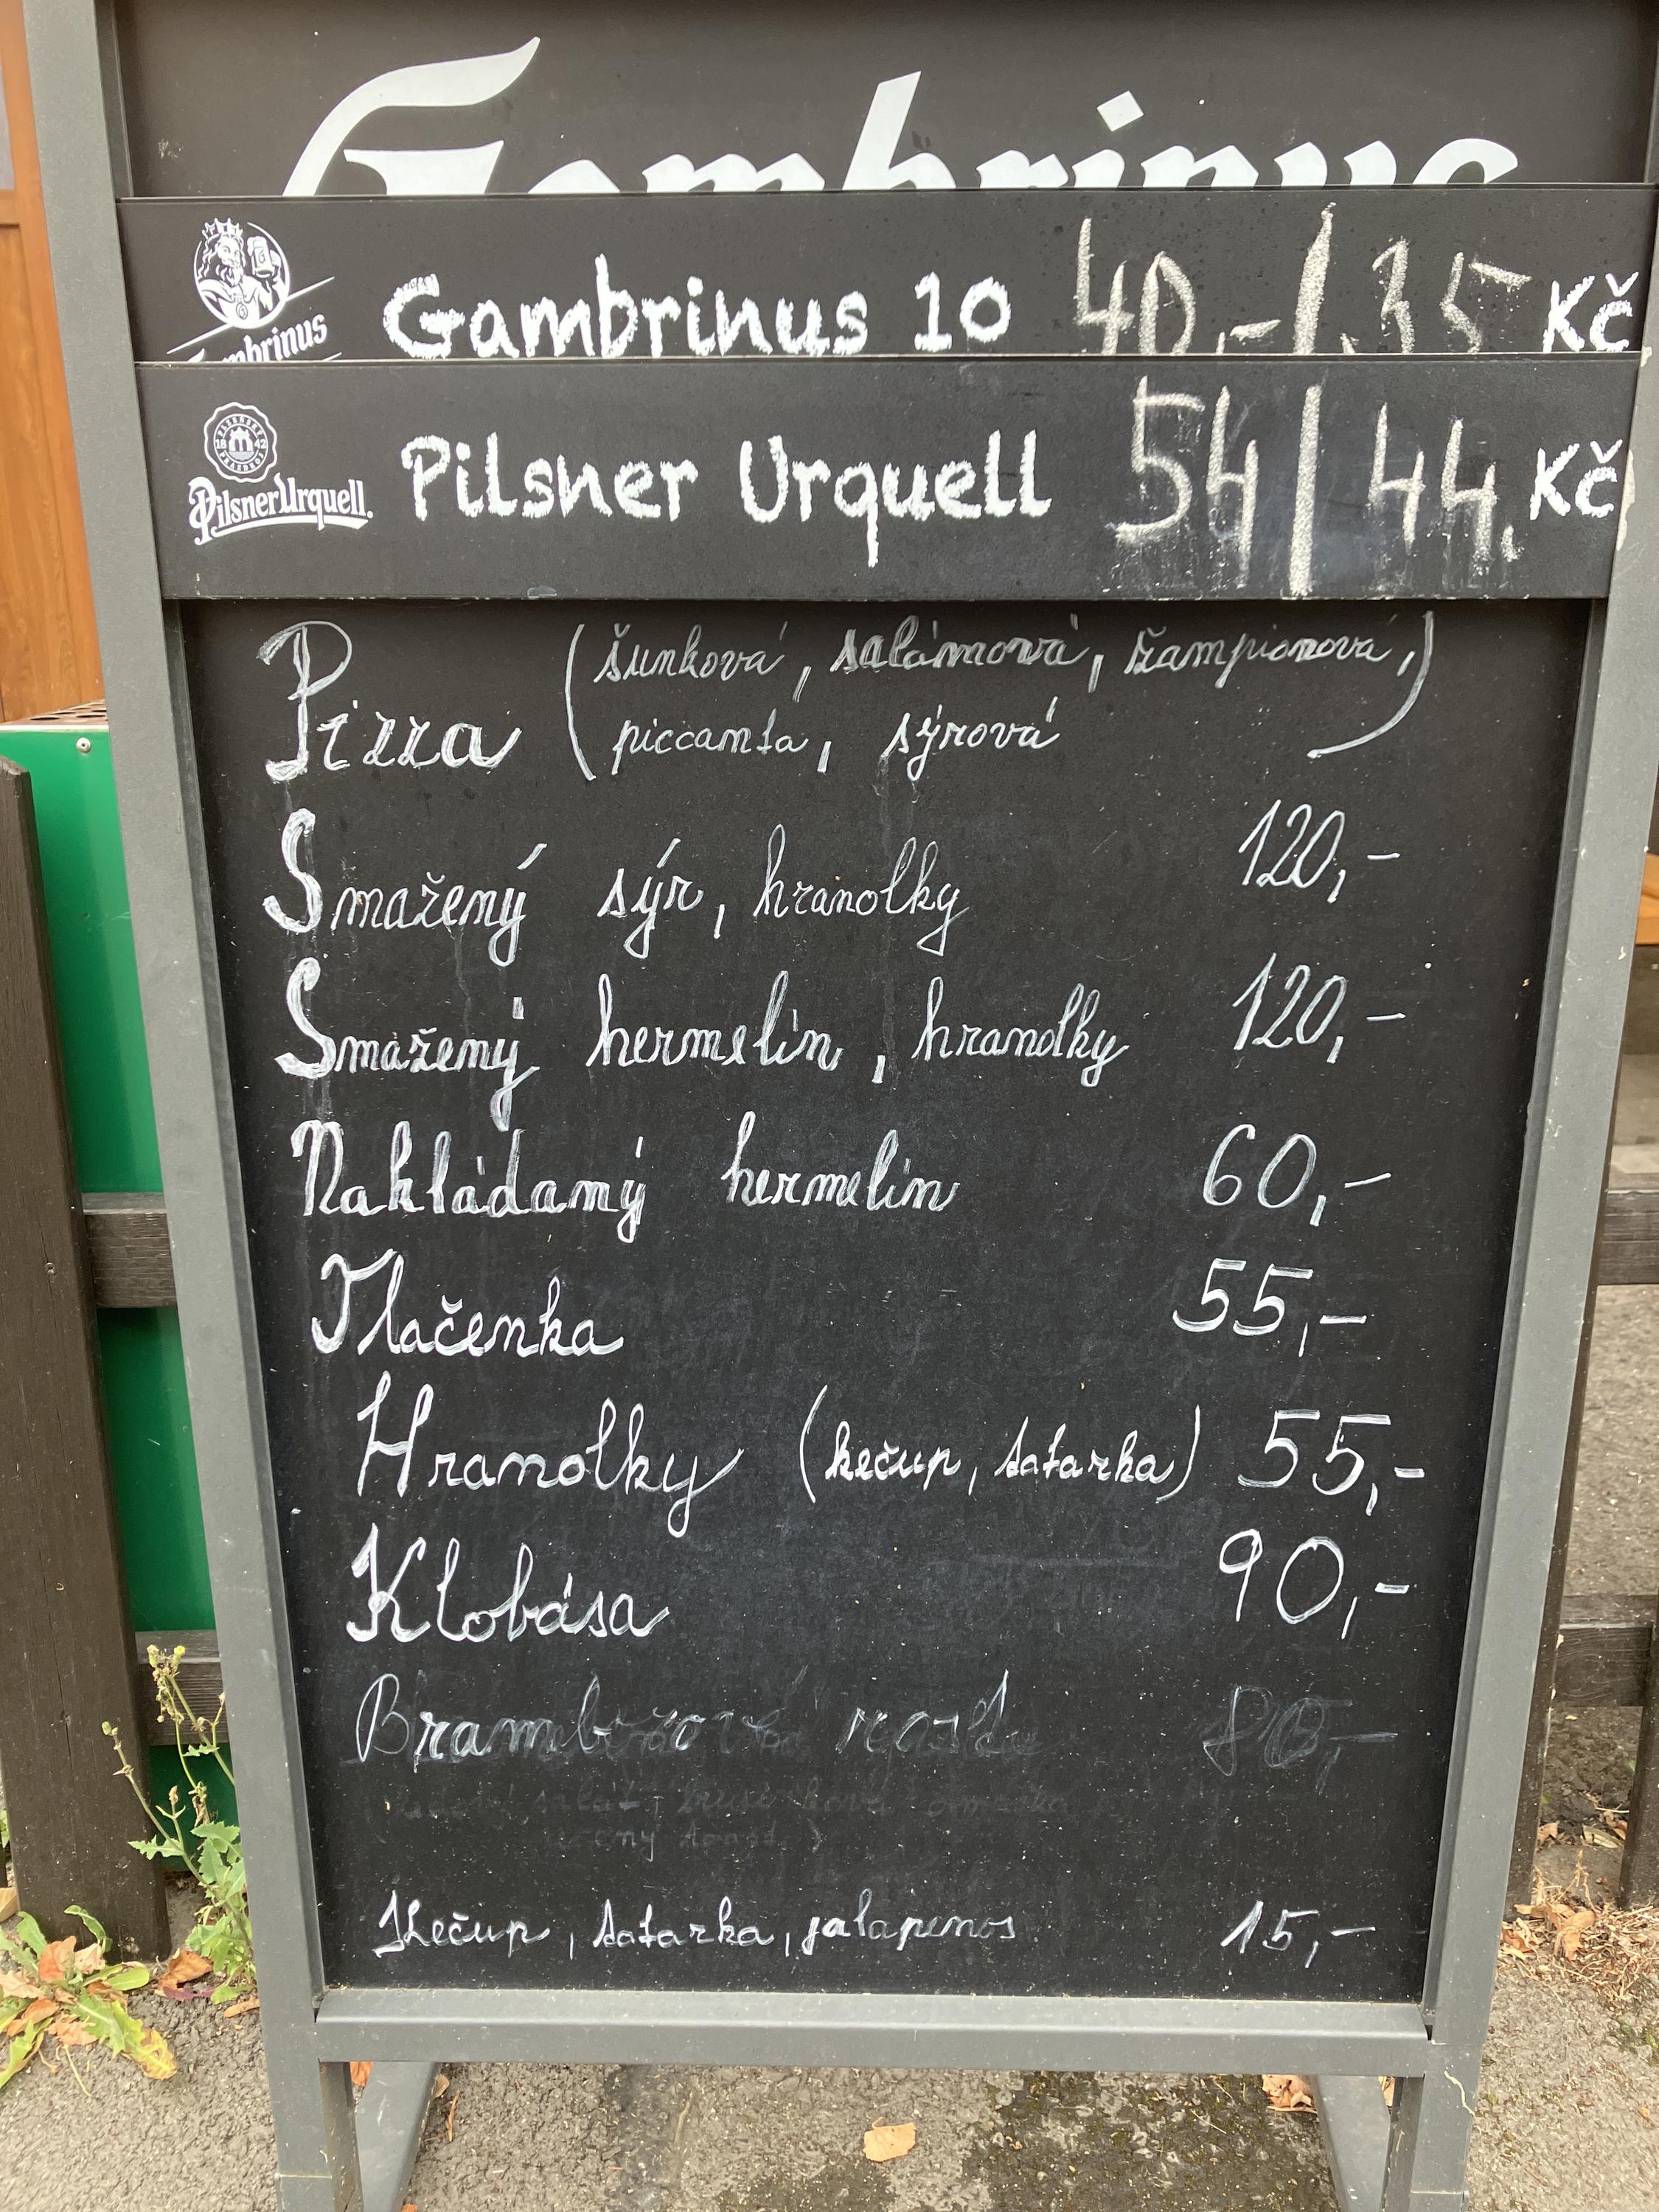 Gambrinus
Gambrinus
Gambrinus 10 40,-/35 Kč
PLZEŇSKÝ PRAZDROJ 1842
Pilsner Urquell.
Pilsner Urquell 54/44, Kč
Pizza (šunková, salámová, žampionová,
piccanta, sýrová)
Smažený sýr, hranolky 120,-
Smažený hermelín, hranolky 120,-
Nakládaný hermelín 60,-
Tlačenka 55,-
Hranolky (kečup, tatarka) 55,-
Klobása 90,-
80,-
Kečup, tatarka, jalapenos 15,-